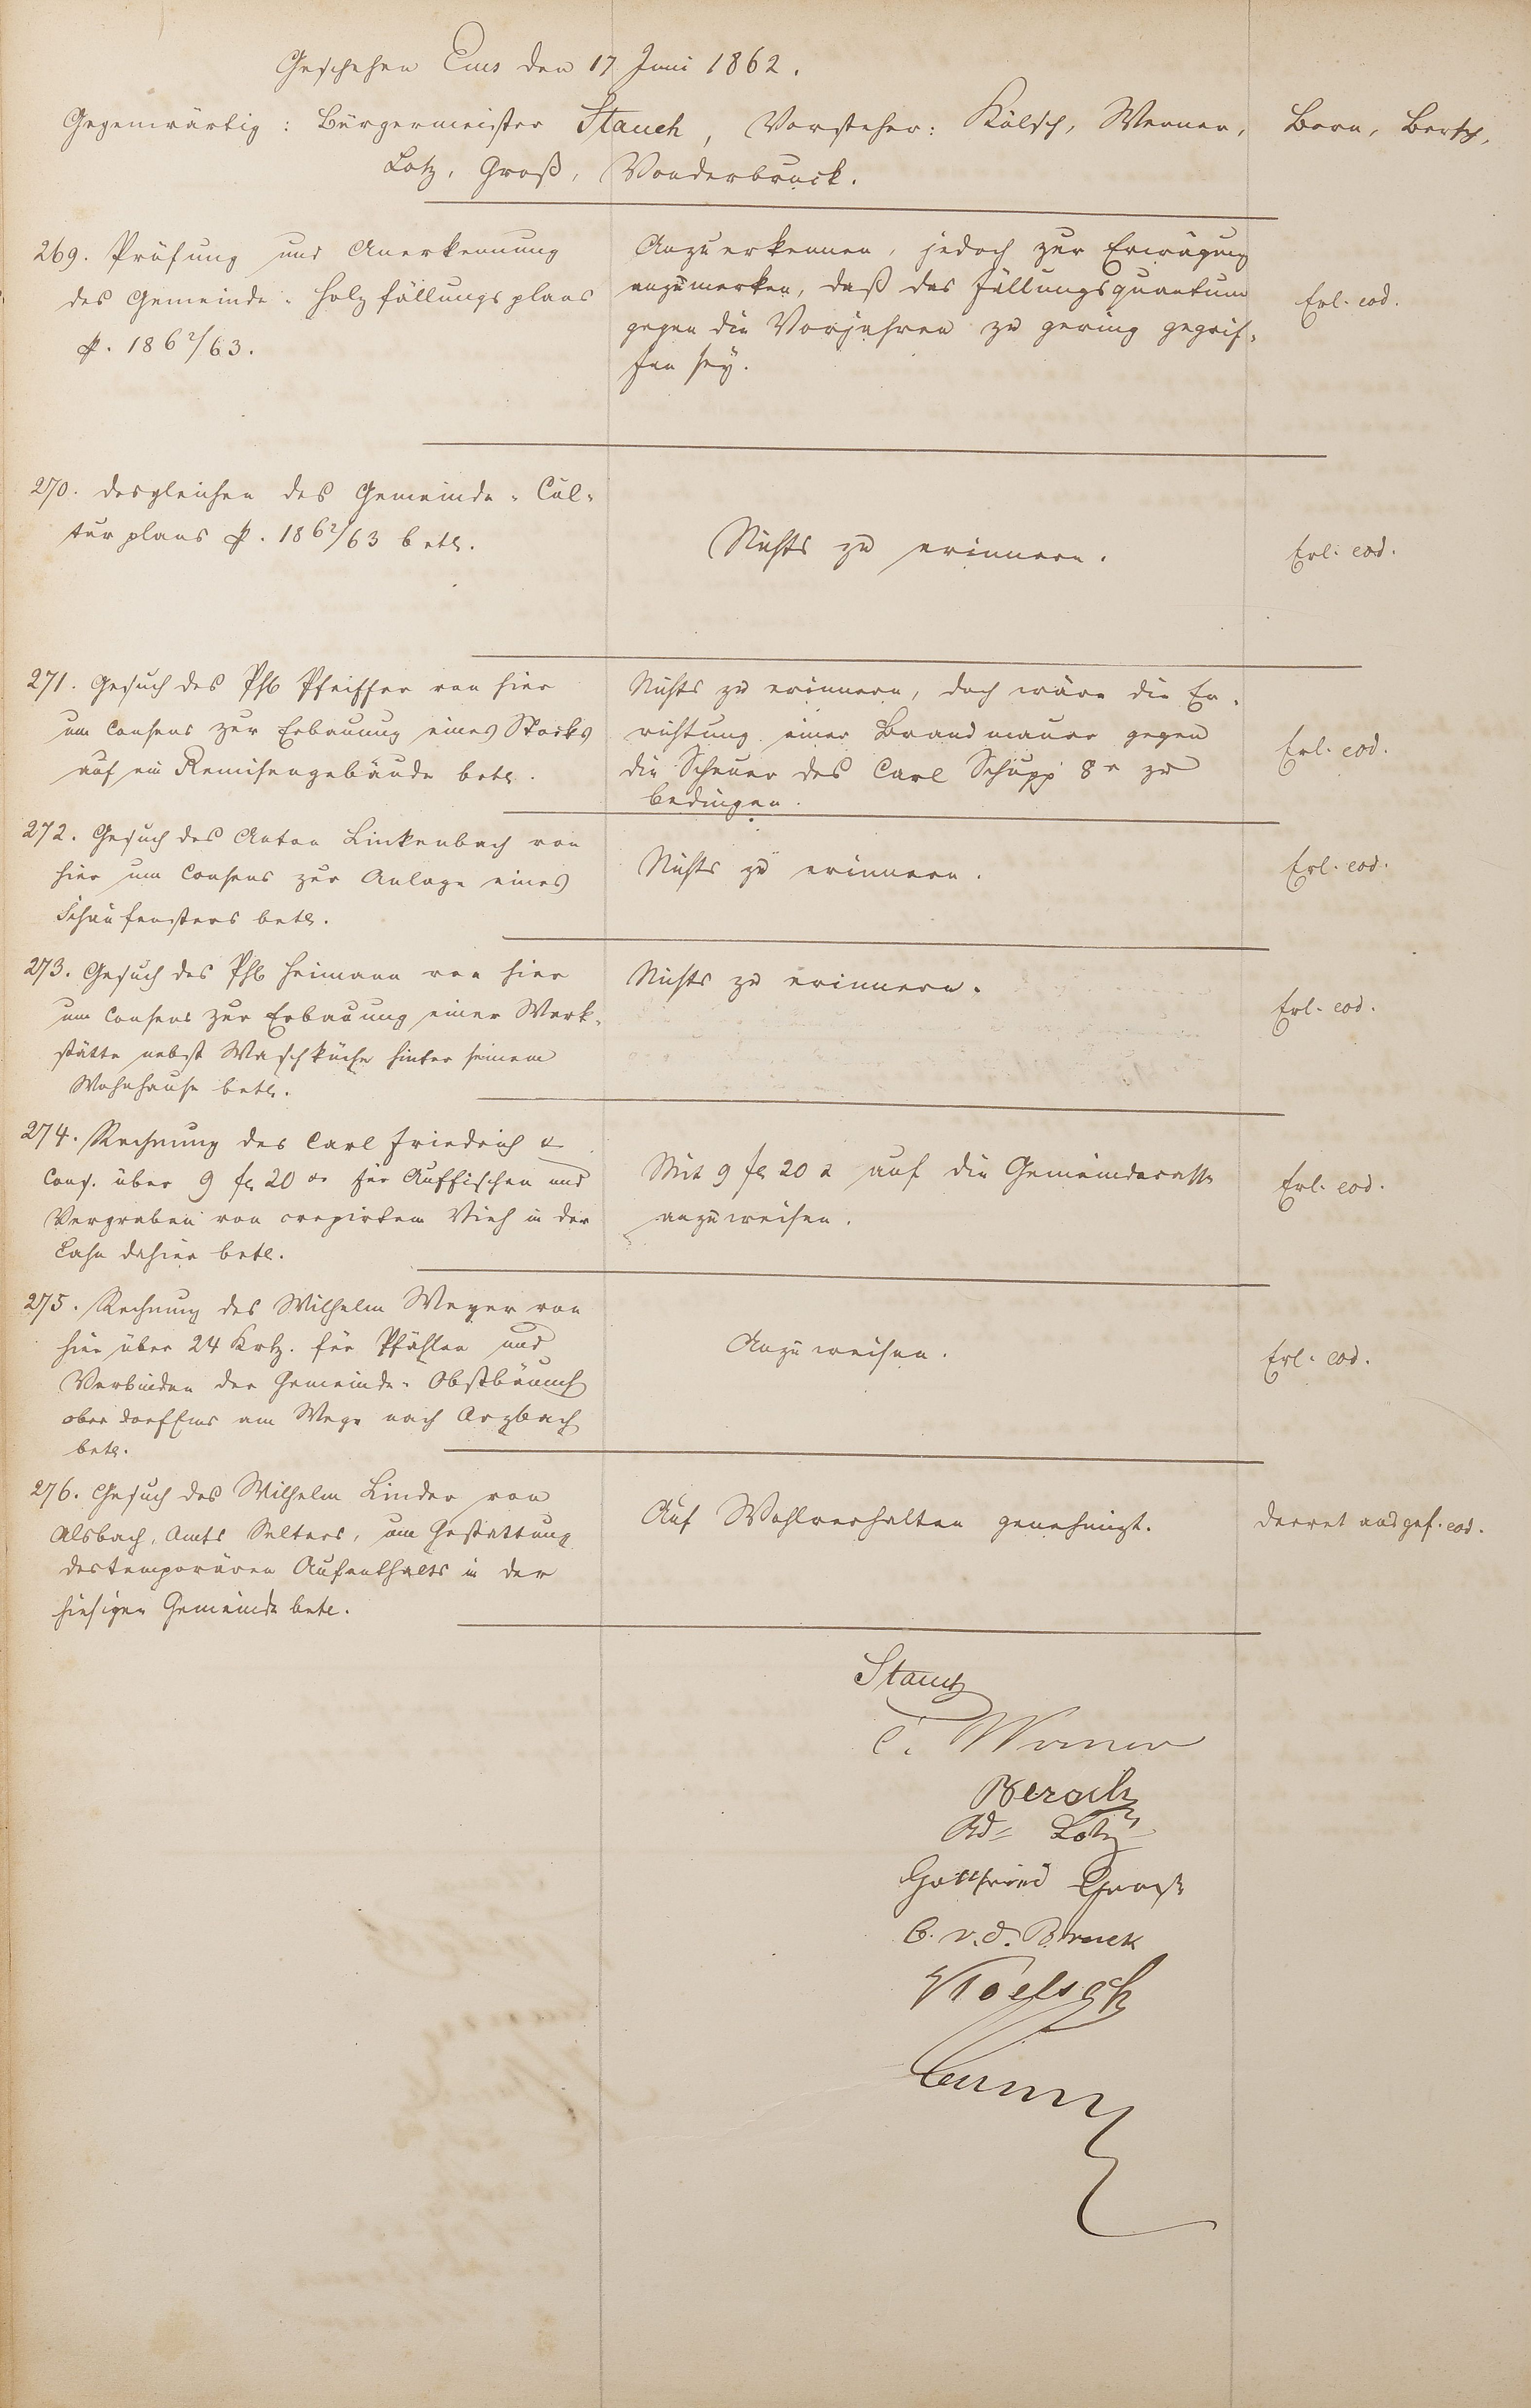 Geschehen Ems den 17 Juni 1862.
Gegenwärtig: Bürgermeister Stauch, Vorsteher: Kölsch, Werner, Born, Bertsch,
Lotz, Groß, Vonderbruck.
269. Prüfung und Anerkennung
des Gemeinde-Holzfällungsplans
p. 1862/63.
Anzuerkennen, jedoch zur Erwägung
anzumerken, daß das Fällungsquantum
gegen die Vorjahren zu gering gegrif-
fen sey.
Erl. eod.
270. desgleichen des Gemeinde-Cul-
turplans p. 1862/63 betr.
Nichts zu erinnern.
Erl. eod.
271. Gesuch des Phil Pfeiffer von hier
um Consens zur Erbauung eines Stocks
auf ein Remisengebäude betr.
Nichts zu erinnern, doch wäre die Er-
richtung einer Brandmauer gegen
die Scheuer des Carl Schupp 8r zu
bedingen.
Erl. eod.
272. Gesuch des Anton Linkenbach von
hier um Consens zur Anlage eines
Schaufensters betr.
Nichts zu erinnern.
Erl. eod.
273. Gesuch des Phil Heimann von hier
um Consens zur Erbauung einer Werk-
stätte nebst Waschküche hinter seinem
Wohnhause betr.
Nichts zu erinnern.
Erl. eod.
274. Rechnung des Carl Friedrich &
Cons. über 9 fl 20 xr für Auffischen und
Vergraben von crepirtem Vieh in der
Lahn dahier betr.
Mit 9 fl 20 x auf die Gemeindecasse
anzuweisen.
Erl. eod.
275. Rechnung des Wilhelm Weyer von
hier über 24 Krtz. für Pfählen und
Verbinden der Gemeinde-Obstbäume
ober Dorf Ems am Wege nach Arzbach
betr.
Anzuweisen.
Erl. eod.
276. Gesuch des Wilhelm Linder von
Alsbach, Amts Selters, um Gestattung
des temporären Aufenthalts in der
hiesigen Gemeinde betr.
Auf Wohlverhalten genehmigt.
Decret ausgef. eod.
Stauch
C. Werner
Bertsch
Ad. Lotz
Gottfried Gross
C. v. d. Bruck
Koelsch